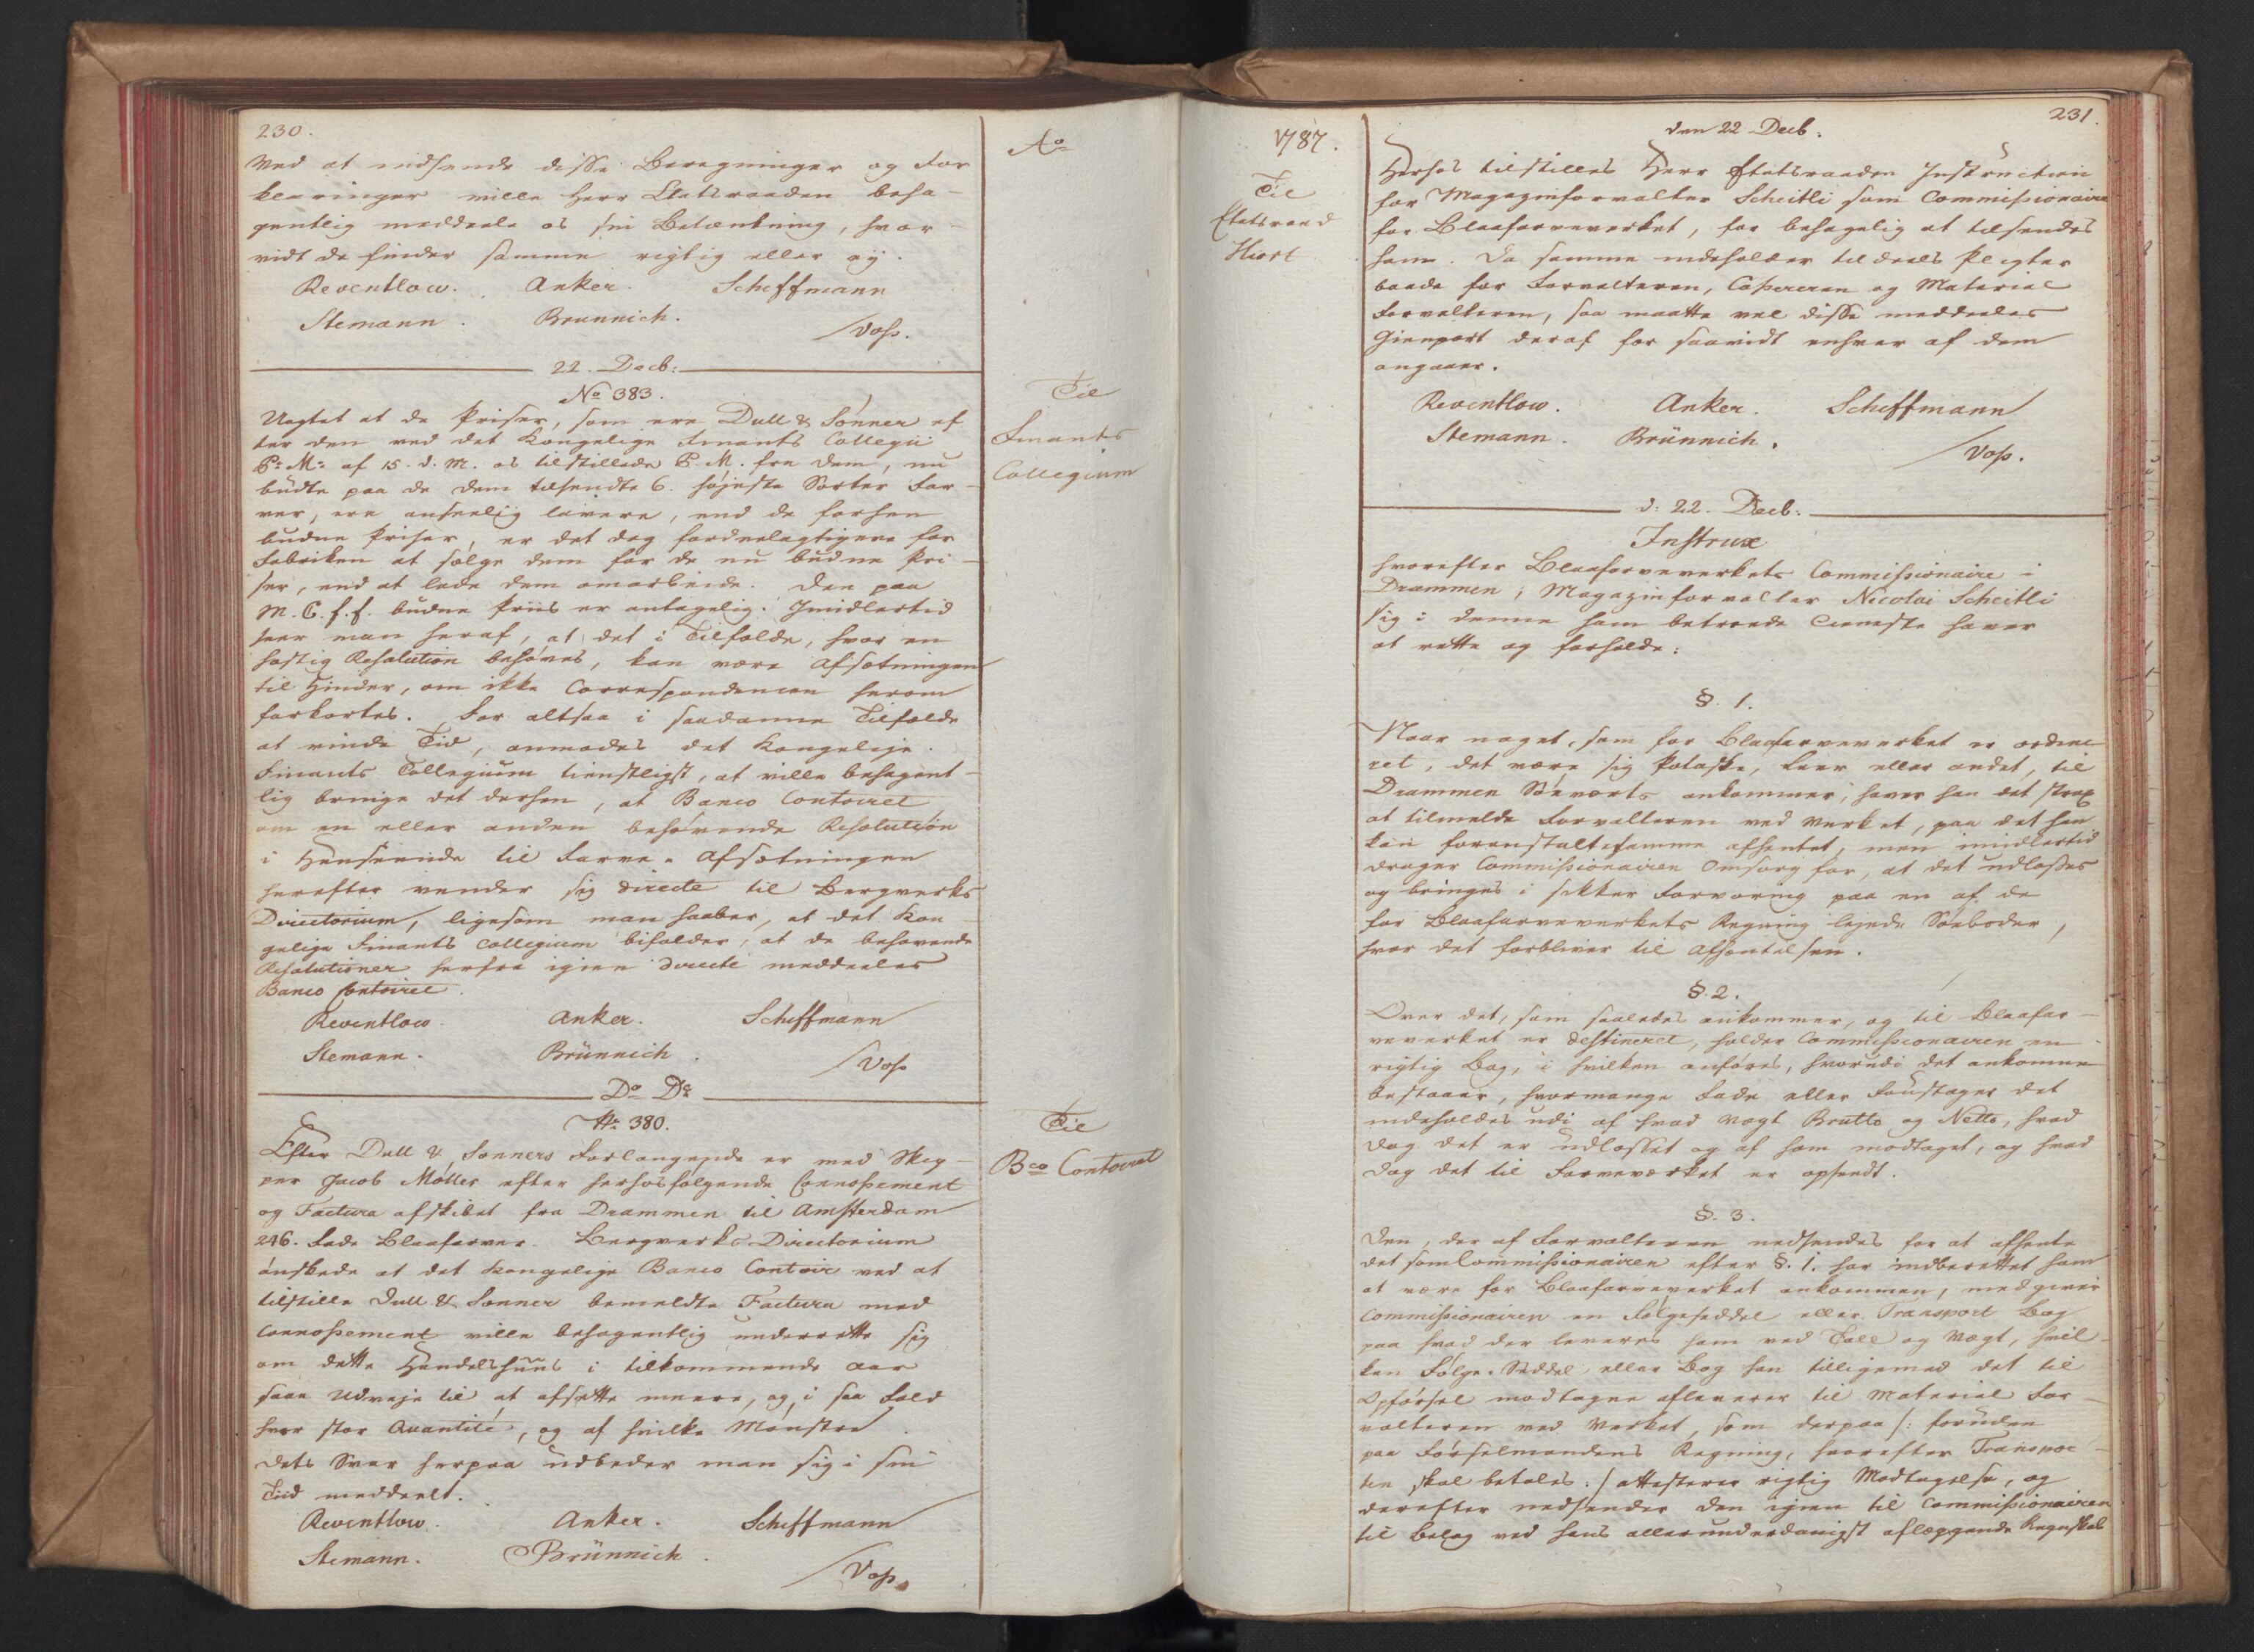 230.
Ao
Ved at indsende disse Beregninger og For
klaringer ville Herr Etatsraaden beha-
gentlig meddeele os sin Betænkning, hvor-
vidt de finder samme rigtig eller ej.
Reventlow. Anker. Scheffmann
Stemann. Brunnich.
/Voss.
22. Decb:
No 383.
Til
Finants
Collegium
Uagtet at de Priser, som ere Dull & Sønner ef
ter den ved det Kongelige Finants Collegii
P: M: af 15. d. M. os tilstillede P. M. fra dem, nu
budte paa de dem tilsendte 6. højeste Sorter Far-
ver, ere anseelig lavere, end de forhen
budne Priser, er det dog fordeelagtigere for
Fabriken at sælge dem for de nu budne Pri-
ser, end at lade dem omarbeide. Den paa
M. C. f. f. budne Priis er antagelig. Imidlertid
seer man heraf, at det i Tilfælde, hvor en
hastig Resolution behøves, kan være Afsætningen
til Hinder, om ikke Correspondencen herom
forkortes. For altsaa i saadanne Tilfælde
at vinde Tid, anmodes det Kongelige
Finants Collegium tienstligst, at ville behagent-
lig bringe det derhen, at Banco Contoiret
om en eller anden behøvende Resolution
i Henseende til Farve-Afsætningen
herefter vender sig directe til Bergverks
Directorium, ligesom man haaber, at det Kon-
gelige Finants Collegium bifalder, at de behøvende
Resolutioner herfra igien directe meddeeles
Banco Contoiret.
Reventlow. Anker. Scheffmann
Stemann. Brünnich.
/Voss
Do Do
No 380.
Til
Bco Contoiret
Efter Dull & Sønners Forlangende er med Skip-
per Jacob Møller efter herhosfølgende Connossement
og Factura afskibet fra Drammen til Amsterdam
246. Fade Blaafarver. Bergverks-Directorium
ønskede at det Kongelige Banco Contoir ved at
tilstille Dull & Sønner bemeldte Factura med
Connossement ville behagentlig underrette sig
om dette Handelshuus i tilkommende Aar
saae Udveje til at afsætte meere, og i saa Fald
hvor stor Quantité, og af hvilke Mønstre
Dets Svar herpaa udbeder man sig i sin
Tiid meddeelt.
Reventlow. Anker. Scheffmann
Stemann. Brünnich.
/Voss.
231.
1787.
den 22 Decb.
Til
Etatsraad
Hiort
Herhos tilstilles Herr Etatsraaden Instruction
for Magazinforvalter Scheitli som Commissionaire
for Blaafarveverket, for behagelig at tilsendes
ham. Da samme indeholder tildeels Pligter
baade for Forvalteren, Cassereren og Material
Forvalteren, saa maatte vel disse meddeeles
Gienpart deraf for saavidt enhver af dem
angaaer.
Reventlow. Anker. Scheffmann
Stemann. Brünnich.
/Voss.
d: 22. Decb:
Instrux
hvorefter Blaafarveverkets Commissionaire i
Drammen, Magazinforvalter Nicolai Scheitli
sig i denne ham betroede Tieneste haver
at rette og forholde:
§. 1.
Naar noget, som for Blaafarveverket er ordine-
ret, det være sig Potaske, Leer eller andet, til
Drammen Søeværts ankommer, haver han det strax
at tilmelde Forvalteren ved Verket, paa det han
kan foranstalte samme afhentet, men imidlertid
drager Commissionairen Omsorg for, at det udlosses
og bringes i sikker Forvaring paa en af de
for Blaafarveverkets Regning lejede Søeboder,
hvor det forbliver til Afhentelsen.
§. 2.
Over det, som saaledes ankommer, og til Blaafar-
veverket er destineret, holder Commissionairen en
rigtig Bog, i hvilken anføres, hvorudi det ankomne
bestaaer, hvormange Fade eller Foustager det
indeholdes udi af hvad Vægt Brutto og Netto, hvad
Dag det er udlosset og af ham modtaget, og hvad
Dag det til Farveverket er opsendt.
§. 3.
Den, der af Forvalteren nedsendes for at afhente
det som Commissionairen efter §. 1. har indberettet ham
at være for Blaafarveverket ankommen, medgiver
Commissionairen en Følgeseddel eller Transport Bog
paa hvad der leveres ham ved Tall og Vægt, hvil-
ken Følge-Seddel eller Bog han tilligemed det til
Opførsel modtagne afleverer til Material For-
valteren ved Verket, som derpaa /: foruden
paa Førselmandens Regning, hvorefter Transpor-
ten skal betales :/ attesterer rigtig Modtagelse, og
derefter nedsender den igien til Commissionairen
til Belæg ved hans allerunderdanigst aflæggende Regnskab